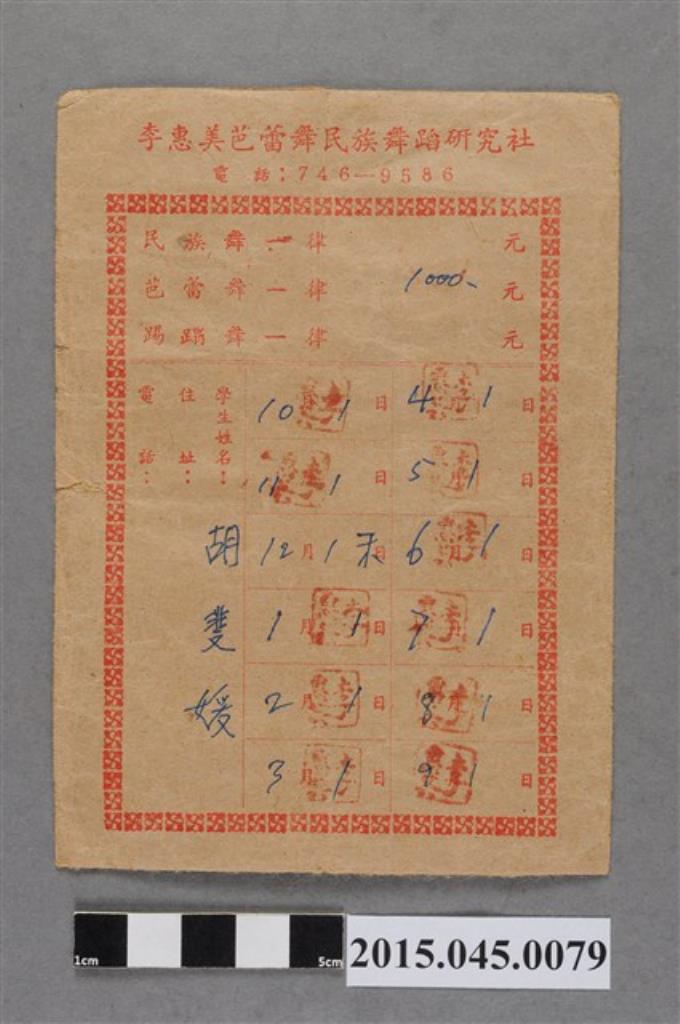 李惠美芭蕾舞民族舞蹈研究社
電話：746—9586
民族舞一律 元
芭蕾舞一律 1000- 元
踢蹋舞一律 元
學生姓名：
住址：
電話：
胡雙媛
10 1日 4 1日
11 1日 5 1日
12月1日 6月1日
1月1日 7月1日
2月1日 8月1日
3月1日 9 1日
1cm 5cm
2015.045.0079